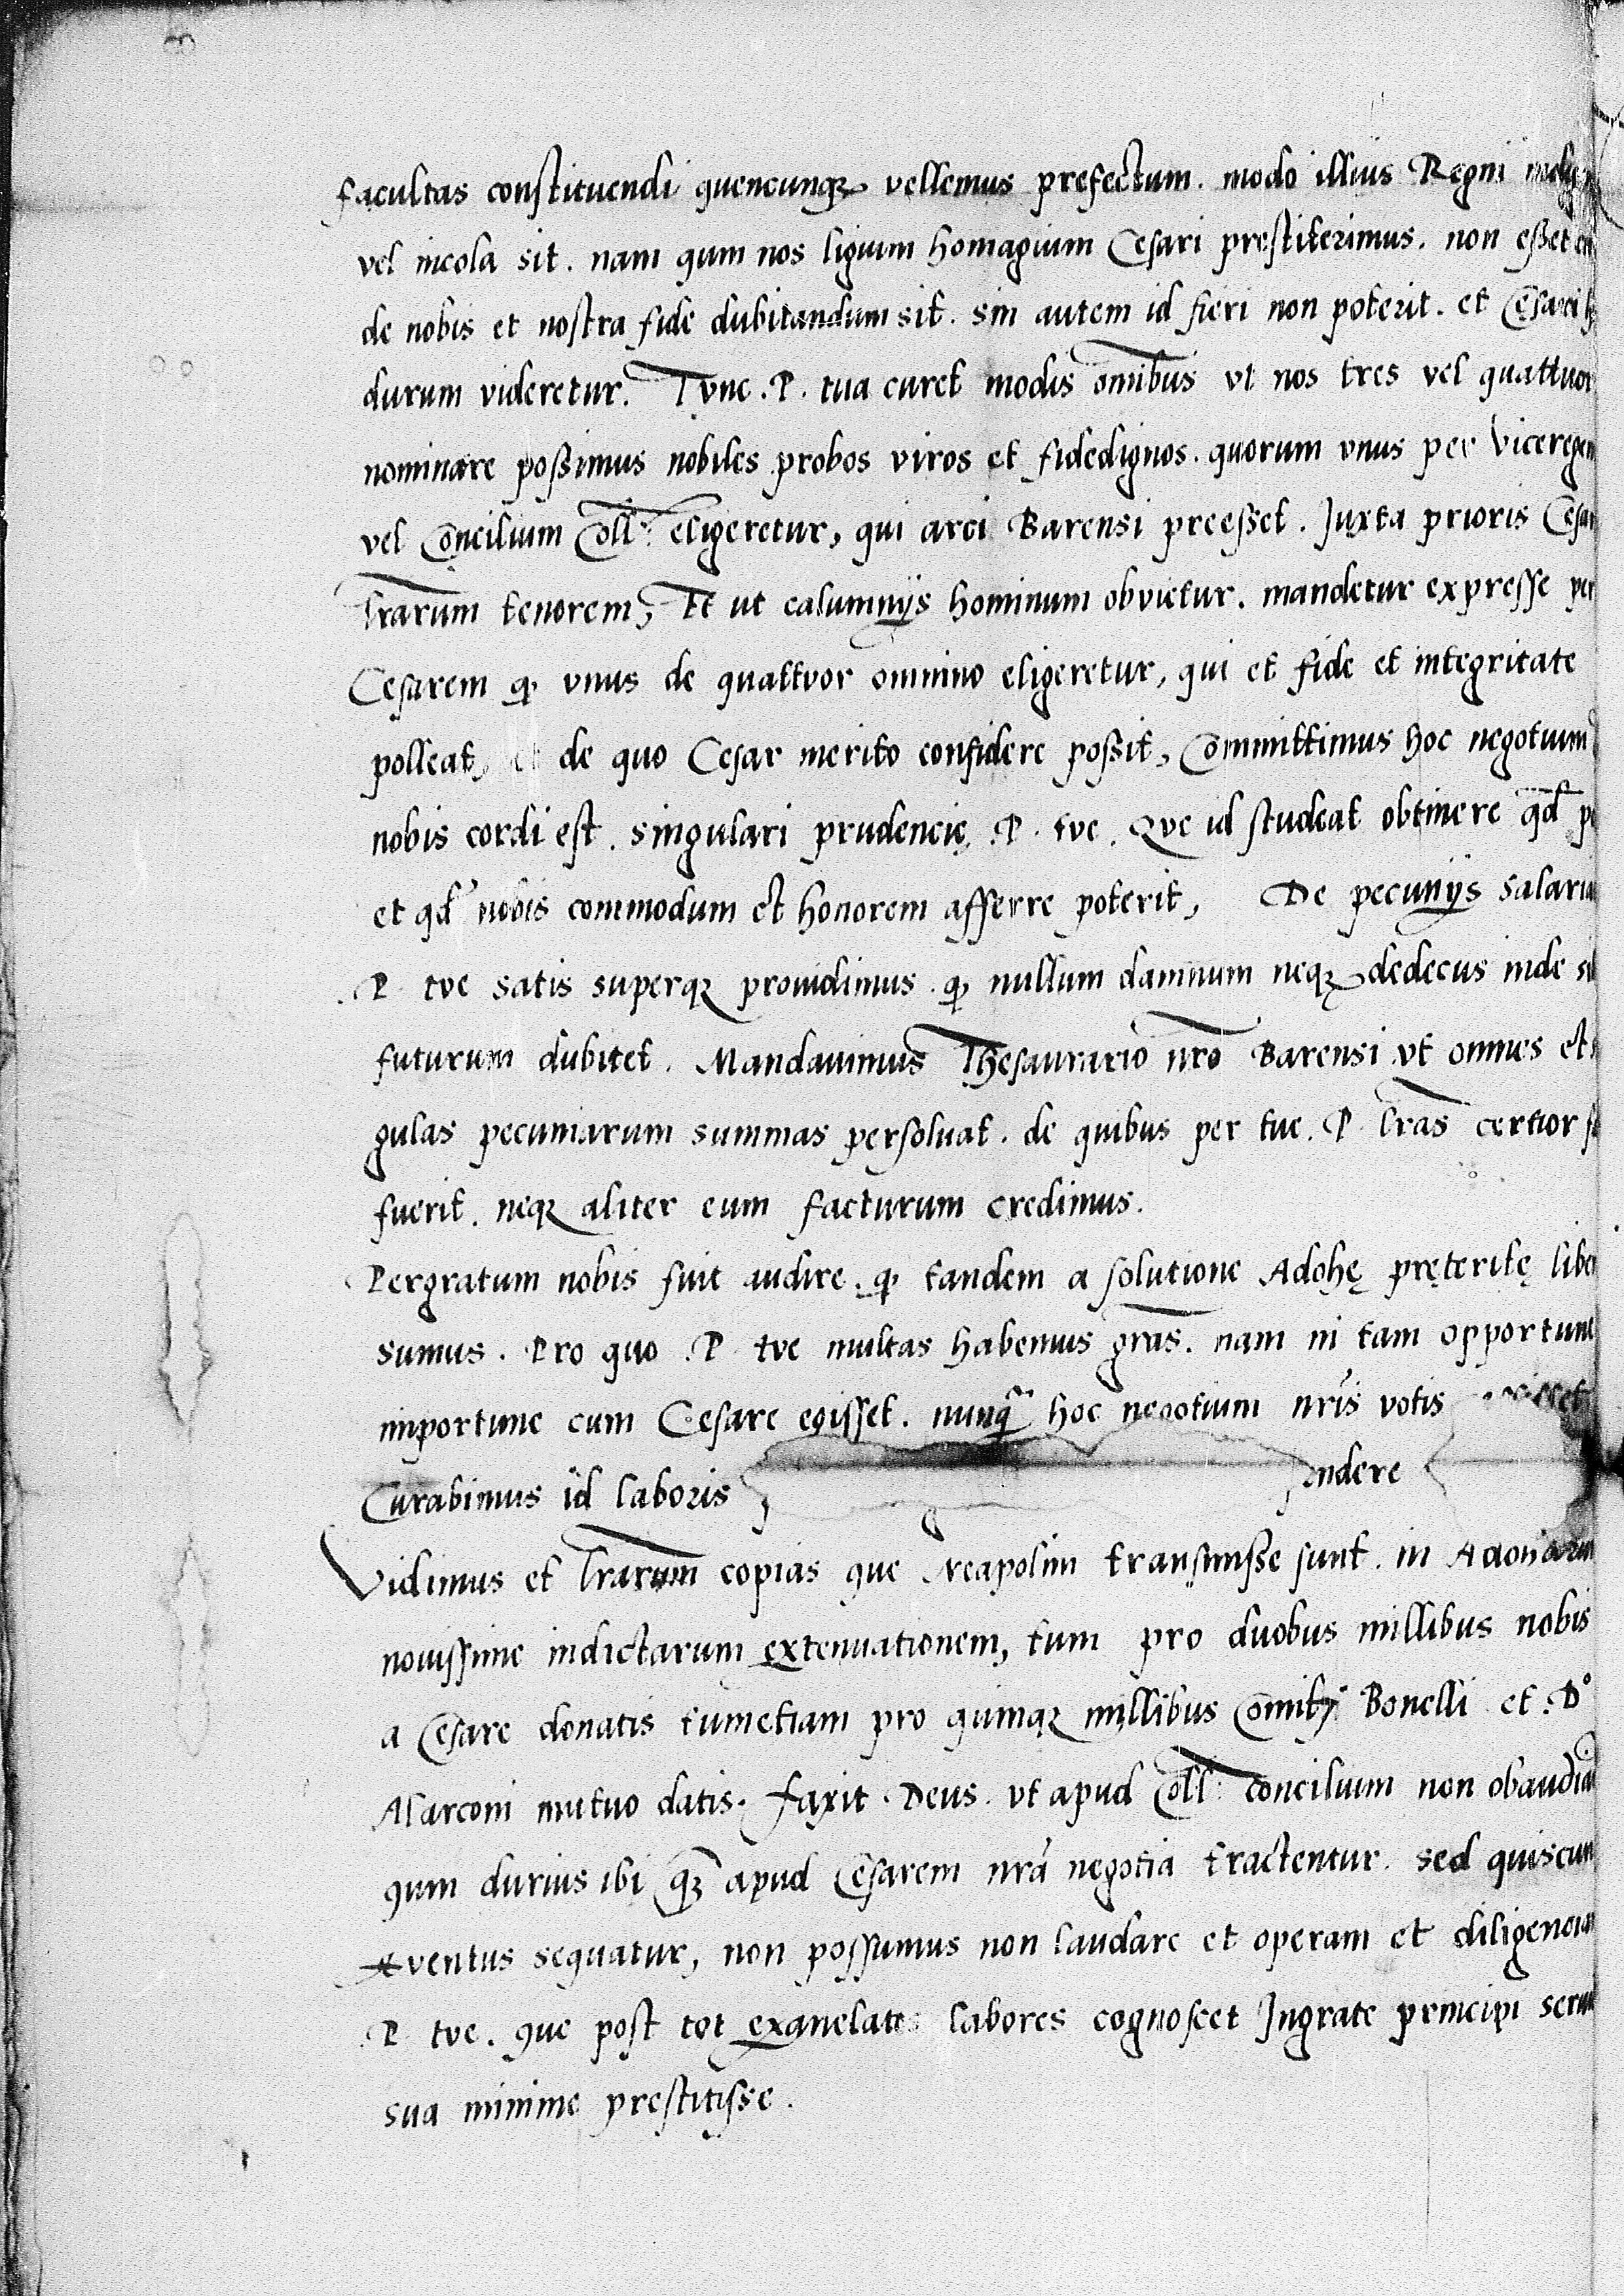 facultas constituendi quencunqꝫ vellemus prefectum. modo illius Regni
vel incola sit. nam qum nos ligium homagium Cesari prestiterimus. non eßet
de nobis et nostra fide dubitandum sit. sin autem id fieri non poterit. et
durum videretur. Tvnc .P. tua curet modis om̅ibus vt nos tres vel quattuor
nominare poßimus nobiles probos viros et fidedignos. quorum vnus per Viceregem
vel Concilium Coll: eligeretur, qui arci Barensi preeßet. Juxta prioris Cesar
l̅r̅arum tenorem, Et ut calumnijs hominum obvietur. mandetur expresse per
Cesarem ꝙ vnus de quattvor omnino eligeretur, qui et fide et integritate
polleat, et de quo Cesar merito confidere poßit, Committimus hoc negotium
nobis cordi est. singulari prudencię .P. tve. Qve id studeat obtinere qd̅
et qd̅ nobis commodum et honorem afferre poterit, De pecunijs salaria
.P. tve satis superqꝫ prouidimus. ꝙ nullum damnum neqꝫ dedecus inde
futurum dubitet. Mandauimus Thesaurario nr̅o Barensi vt omnes et
gulas pecuniarum summas persoluat. de quibus per tue. P. l̅r̅as certior
fuerit. neqꝫ aliter eum facturum credimus.
Pergratum nobis fuit audire. ꝙ tandem a solutione Adohę pręteritę liber
sumus. Pro quo .P. tve multas habemus gr̅as. nam ni tam opportune
importune cum Cesare egisset. nunq̅ hoc negotium nr̅is votis
Curabimus id laboris ndere
Vidimus et l̅r̅arum copias que Neapolim transmisse sunt. in Adoharum
nouissime indictarum extenuationem, tum pro duobus millibus nobis
a Cesare donatis tumetiam pro quinqꝫ millibus Bonelli et .Dº
Alarconi mutuo datis. faxit Deus. vt apud Coll: Concilium non
qum durius ibi qꝫ̅ apud Cesarem nr̅a negotia tractentur. sed quiscun
eventus sequatur, non possumus non laudare et operam et diligenciam
.P. tve. que post tot exanelatos labores cognoscet Ingrate principi
sua minime prestitisse.